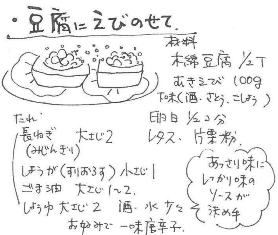 ・豆腐にえびのせて.
材料
木綿豆腐 1/2丁
むきえび 100g
下味(酒、さとう、こしょう)
卵白 1/2コ分
レタス、片栗粉
たれ
長ねぎ 大さじ2
(みじんぎり)
しょうが(すりおろす) 小さじ1
ごま油 大さじ1〜2.
しょうゆ 大さじ2 酒、水 少々
お好みで 一味唐辛子.
あっさり味に
しっかり味の
ソースが
決め手